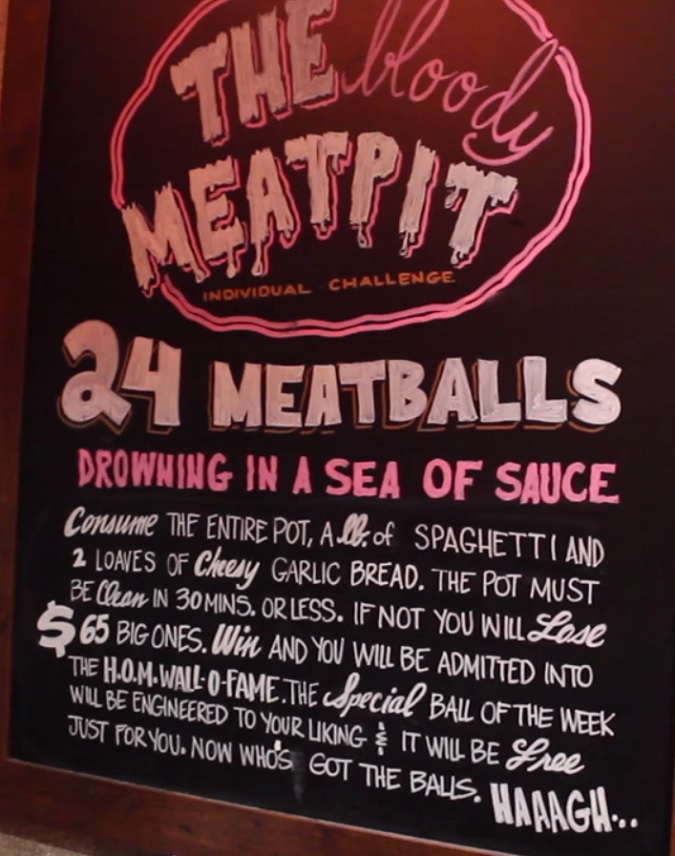 THE bloody
MEATPIT
INDIVIDUAL CHALLENGE
24 MEATBALLS
DROWNING IN A SEA OF SAUCE
Consume THE ENTIRE POT, A lb. of SPAGHETTI AND
2 LOAVES OF Cheesy GARLIC BREAD. THE POT MUST
BE Clean IN 30 MINS. OR LESS. IF NOT YOU WILL Lose
$65 BIG ONES. Win AND YOU WILL BE ADMITTED INTO
THE H.O.M. WALL-O-FAME. THE Special BALL OF THE WEEK
WILL BE ENGINEERED TO YOUR LIKING & IT WILL BE Free
JUST FOR YOU. NOW WHO'S GOT THE BALLS. HAAAGH...